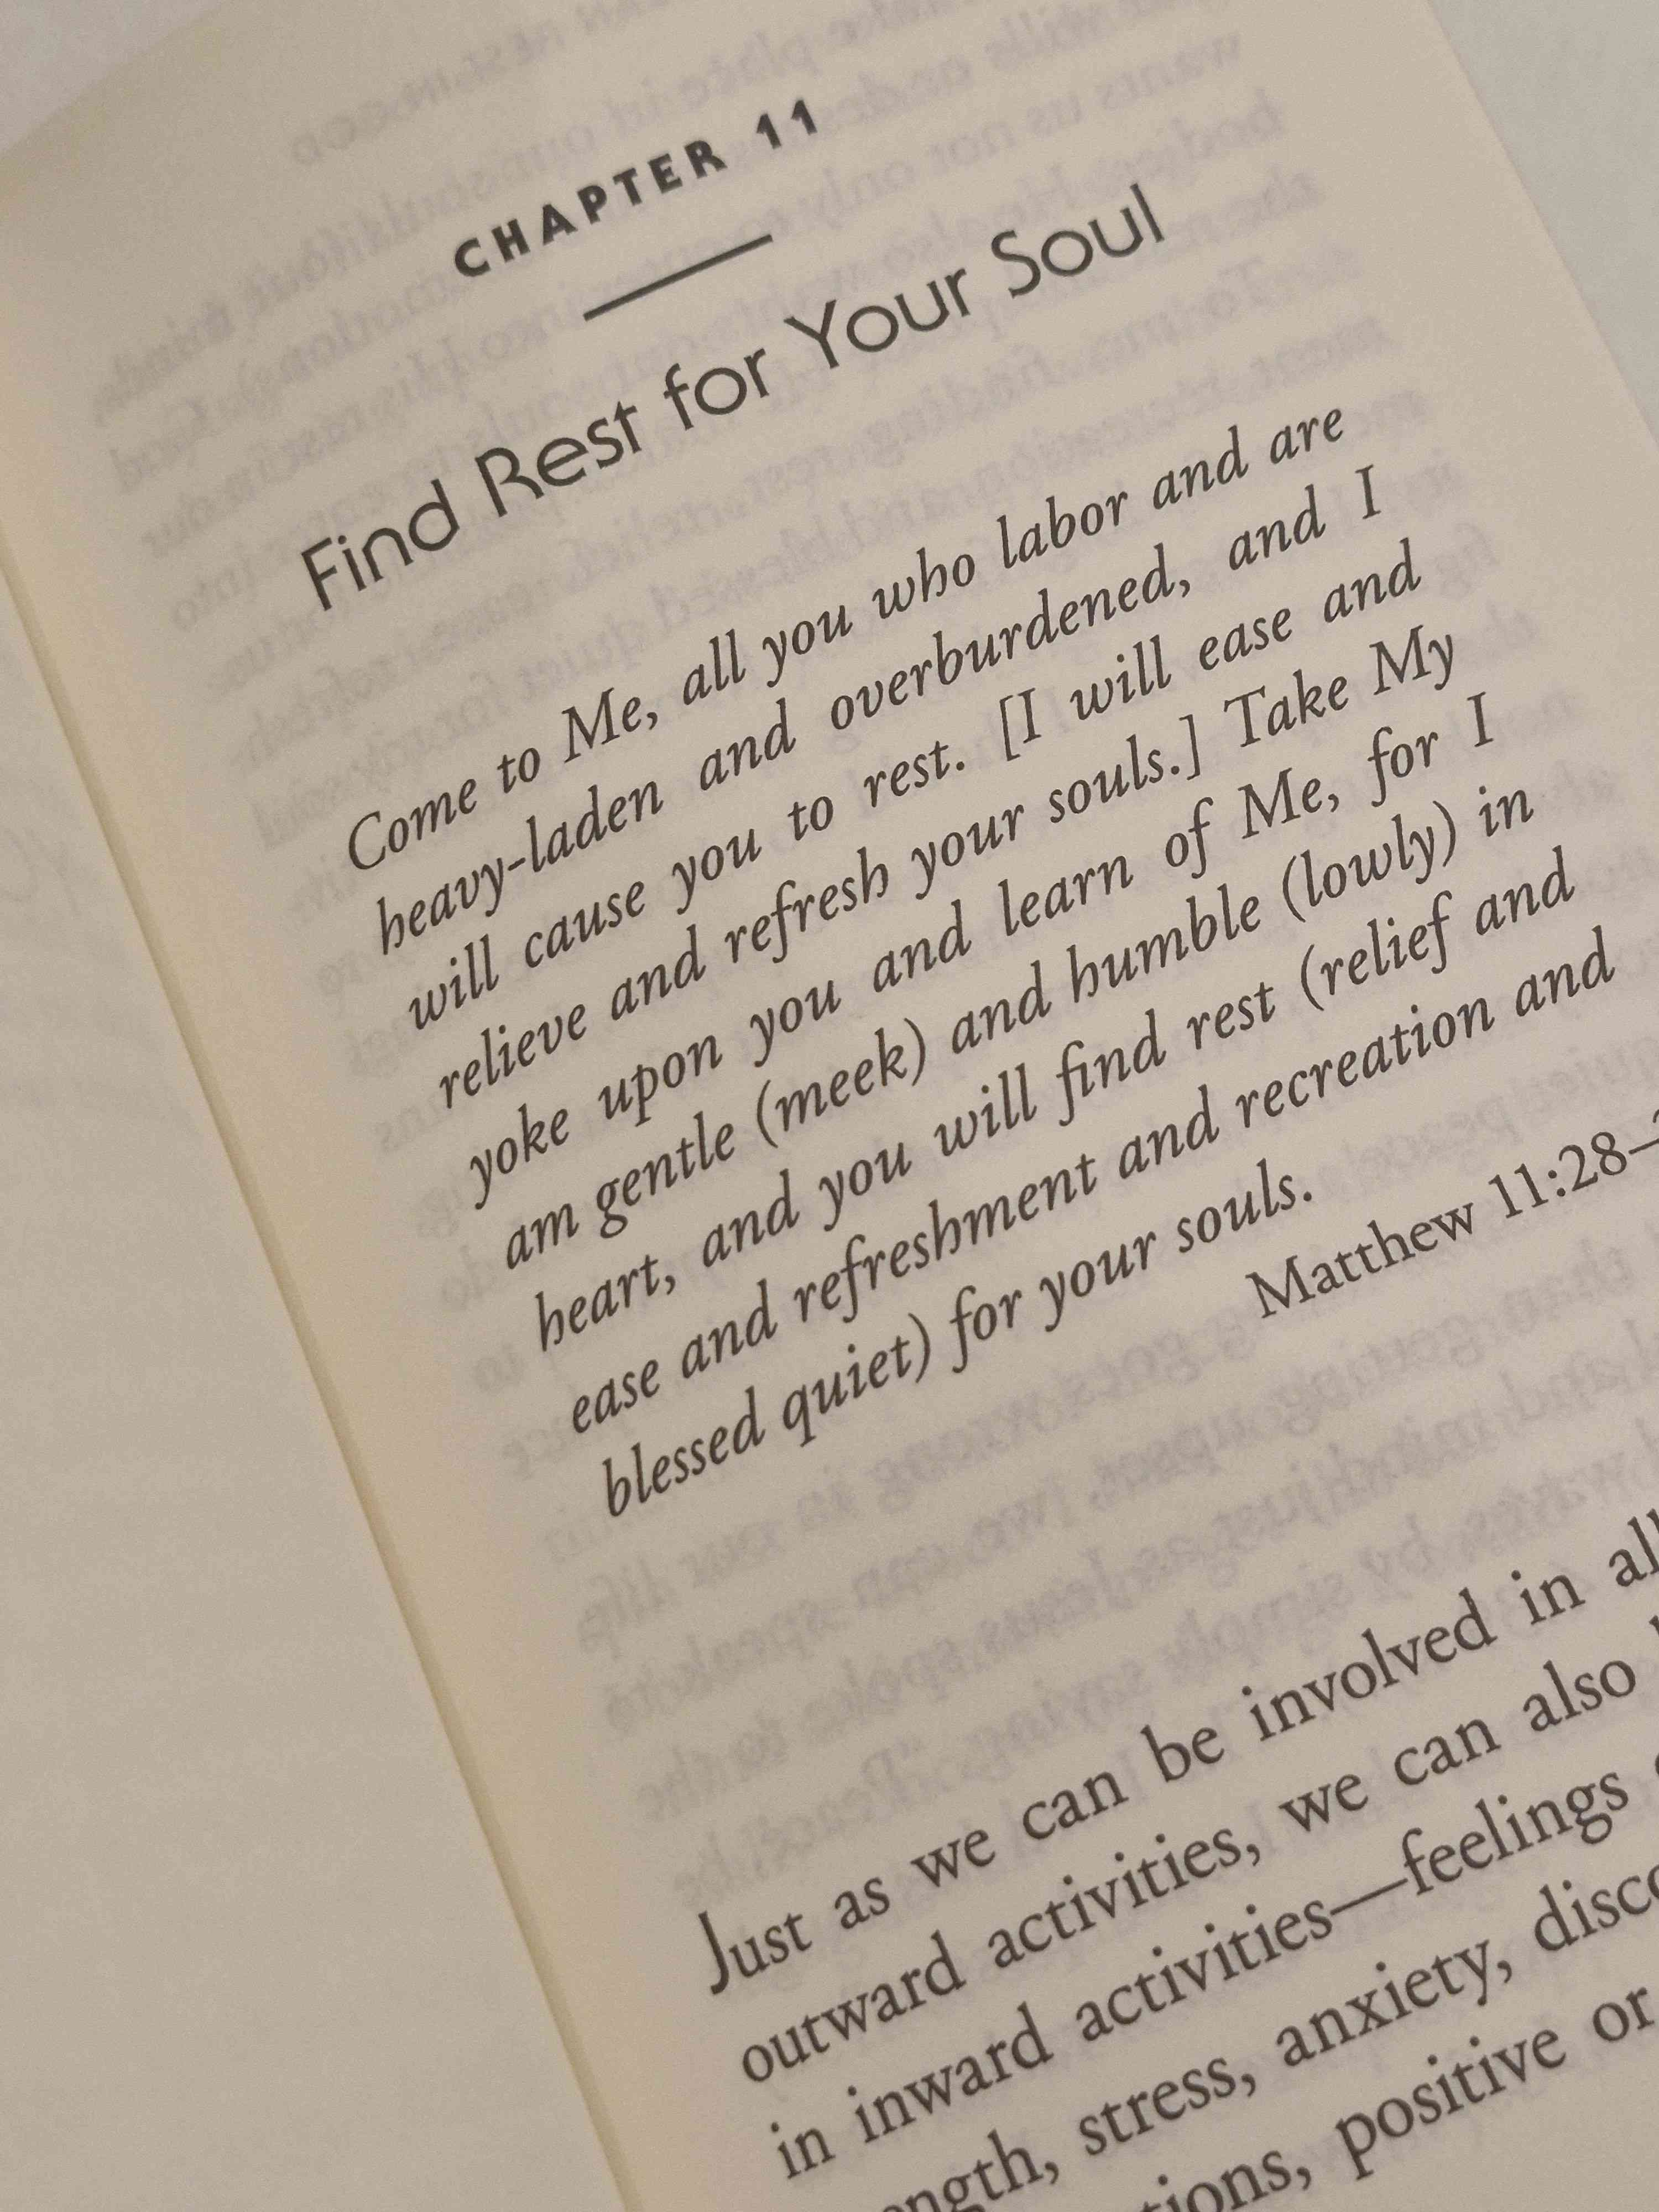 CHAPTER 11
Find Rest for Your Soul
Come to Me, all you who labor and are
heavy-laden and overburdened, and I
will cause you to rest. [I will ease and
relieve and refresh your souls.] Take My
yoke upon you and learn of Me, for I
am gentle (meek) and humble (lowly) in
heart, and you will find rest (relief and
ease and refreshment and recreation and
blessed quiet) for your souls.
Matthew 11:28–
Just as we can be involved in
outward activities, we can also
in inward activities—feelings
stress, anxiety,
positive or